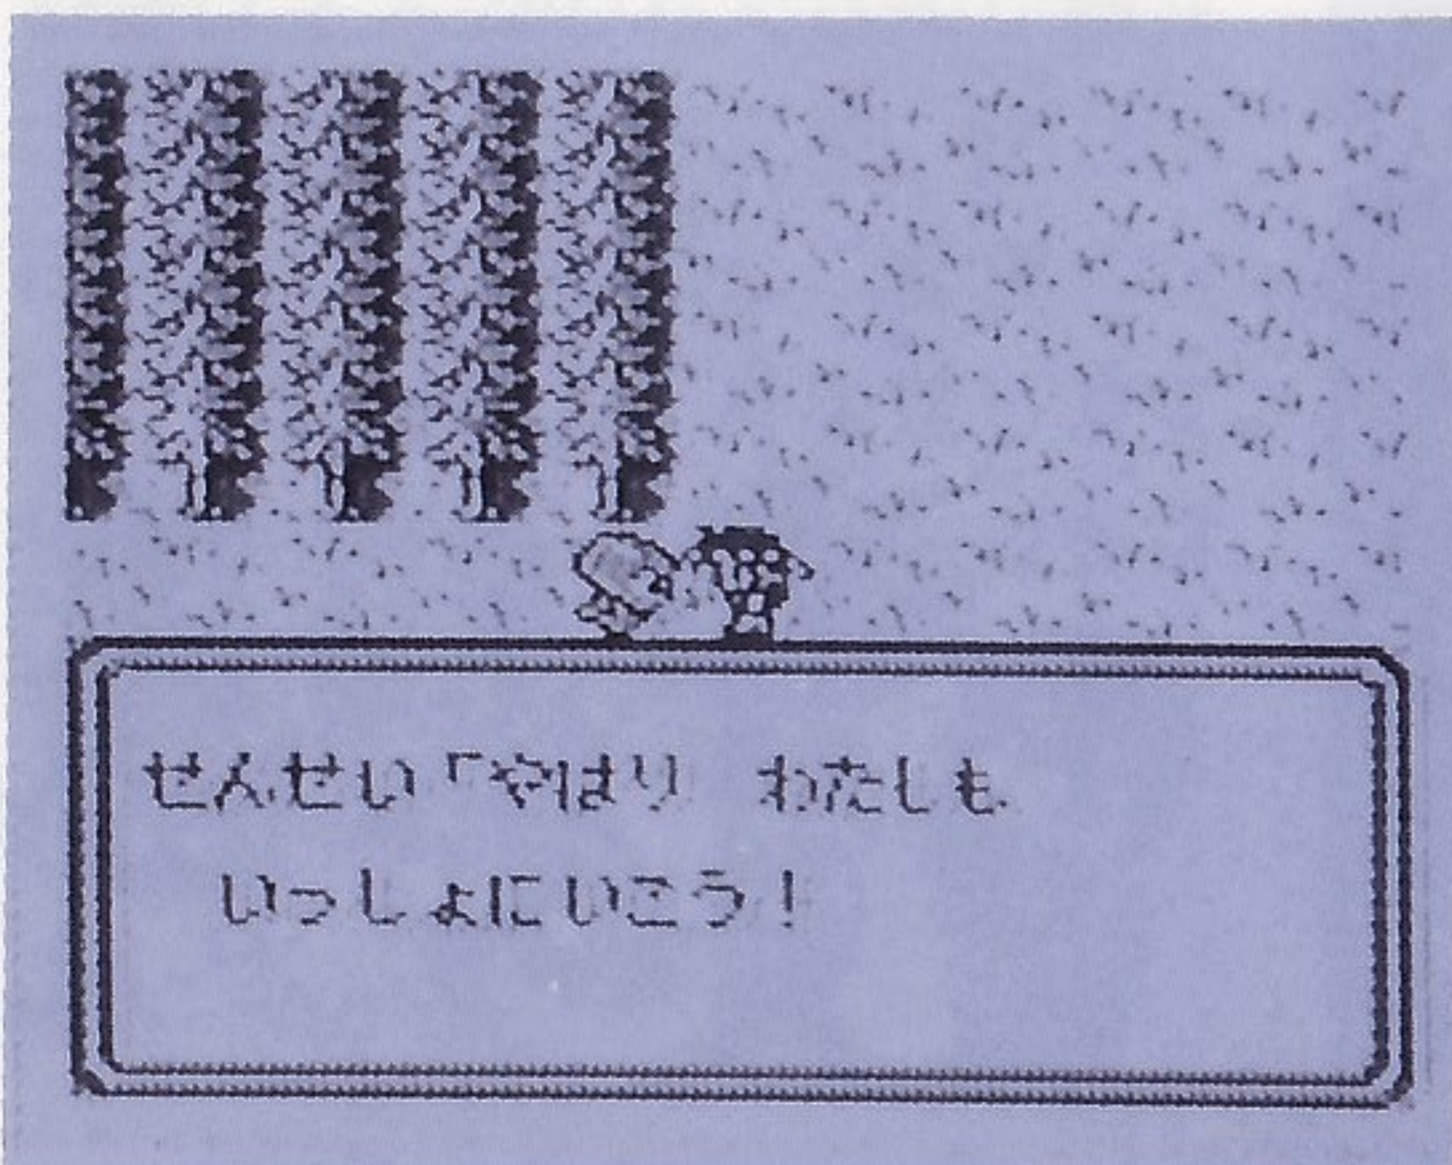 せんせい「やはり　わたしも
いっしょにいこう！